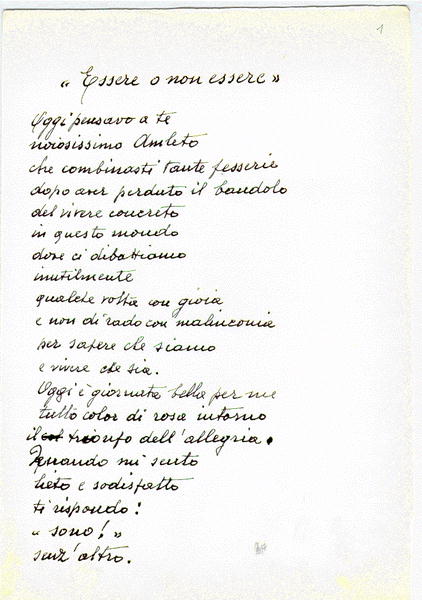 1
« Essere o non essere »
Oggi pensavo a te
noiosissimo Amleto
che combinasti tante fesserie
dopo aver perduto il bandolo
del vivere concreto
in questo mondo
dove ci dibattiamo
inutilmente
qualche volta con gioia
e non di rado con malinconia
per sapere che siamo
e vivere che sia.
Oggi è giornata bella per me
tutto color di rosa intorno
il trionfo dell'allegria.
Quando mi sento
lieto e sodisfatto
ti rispondo:
« sono! »
senz'altro.